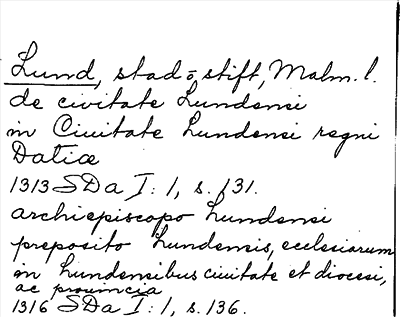 Lund, stad o stift, Malm. l.
de civitate Lundensi
in Ciuitate Lundensi regni
Datiæ
1313 SDa I: 1, s. 131.
archiepiscopo Lundensi
preposito Lundensis, ecclesiarum
in Lundensibus ciuitate et diocesi,
ac prouincia
1316 SDa I: 1, s. 136.